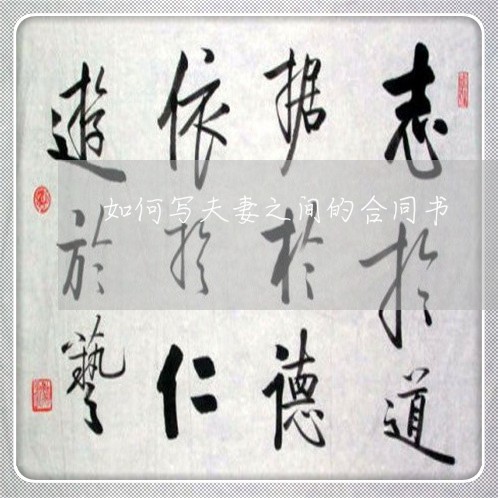 志扵道
据扵德
依扵仁
遊於藝
如何写夫妻之间的合同书